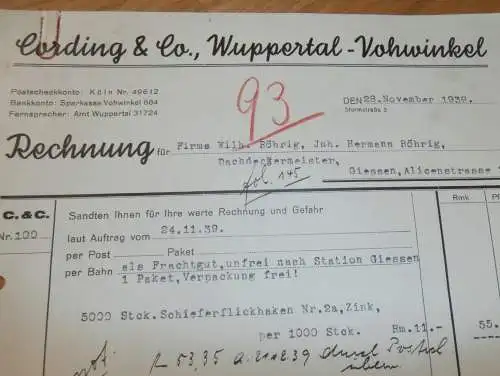 Cording & Co., Wuppertal-Vohwinkel
Postscheckkonto: Köln Nr. 49612
Bankkonto: Sparkasse Vohwinkel 684
Fernsprecher: Amt Wuppertal 31724
93
DEN 28.November 1939.
Sturmstraße 3
Rechnung für Firma Wilh. Röhrig, Inh. Hermann Röhrig,
Dachdeckermeister,
fol. 145
Giessen, Alicenstrasse
C. & C.
Nr. 100
Sandten Ihnen für Ihre werte Rechnung und Gefahr
laut Auftrag vom 24.11.39.
per Post Paket
per Bahn als Frachtgut, unfrei nach Station Giessen
1 Paket, Verpackung frei!
Rmk Pf
5000 Stck. Schieferflickhaken Nr.2a, Zink,
per 1000 Stck. Rm.11.-
55.
53,35 a. 21.12.39 durch